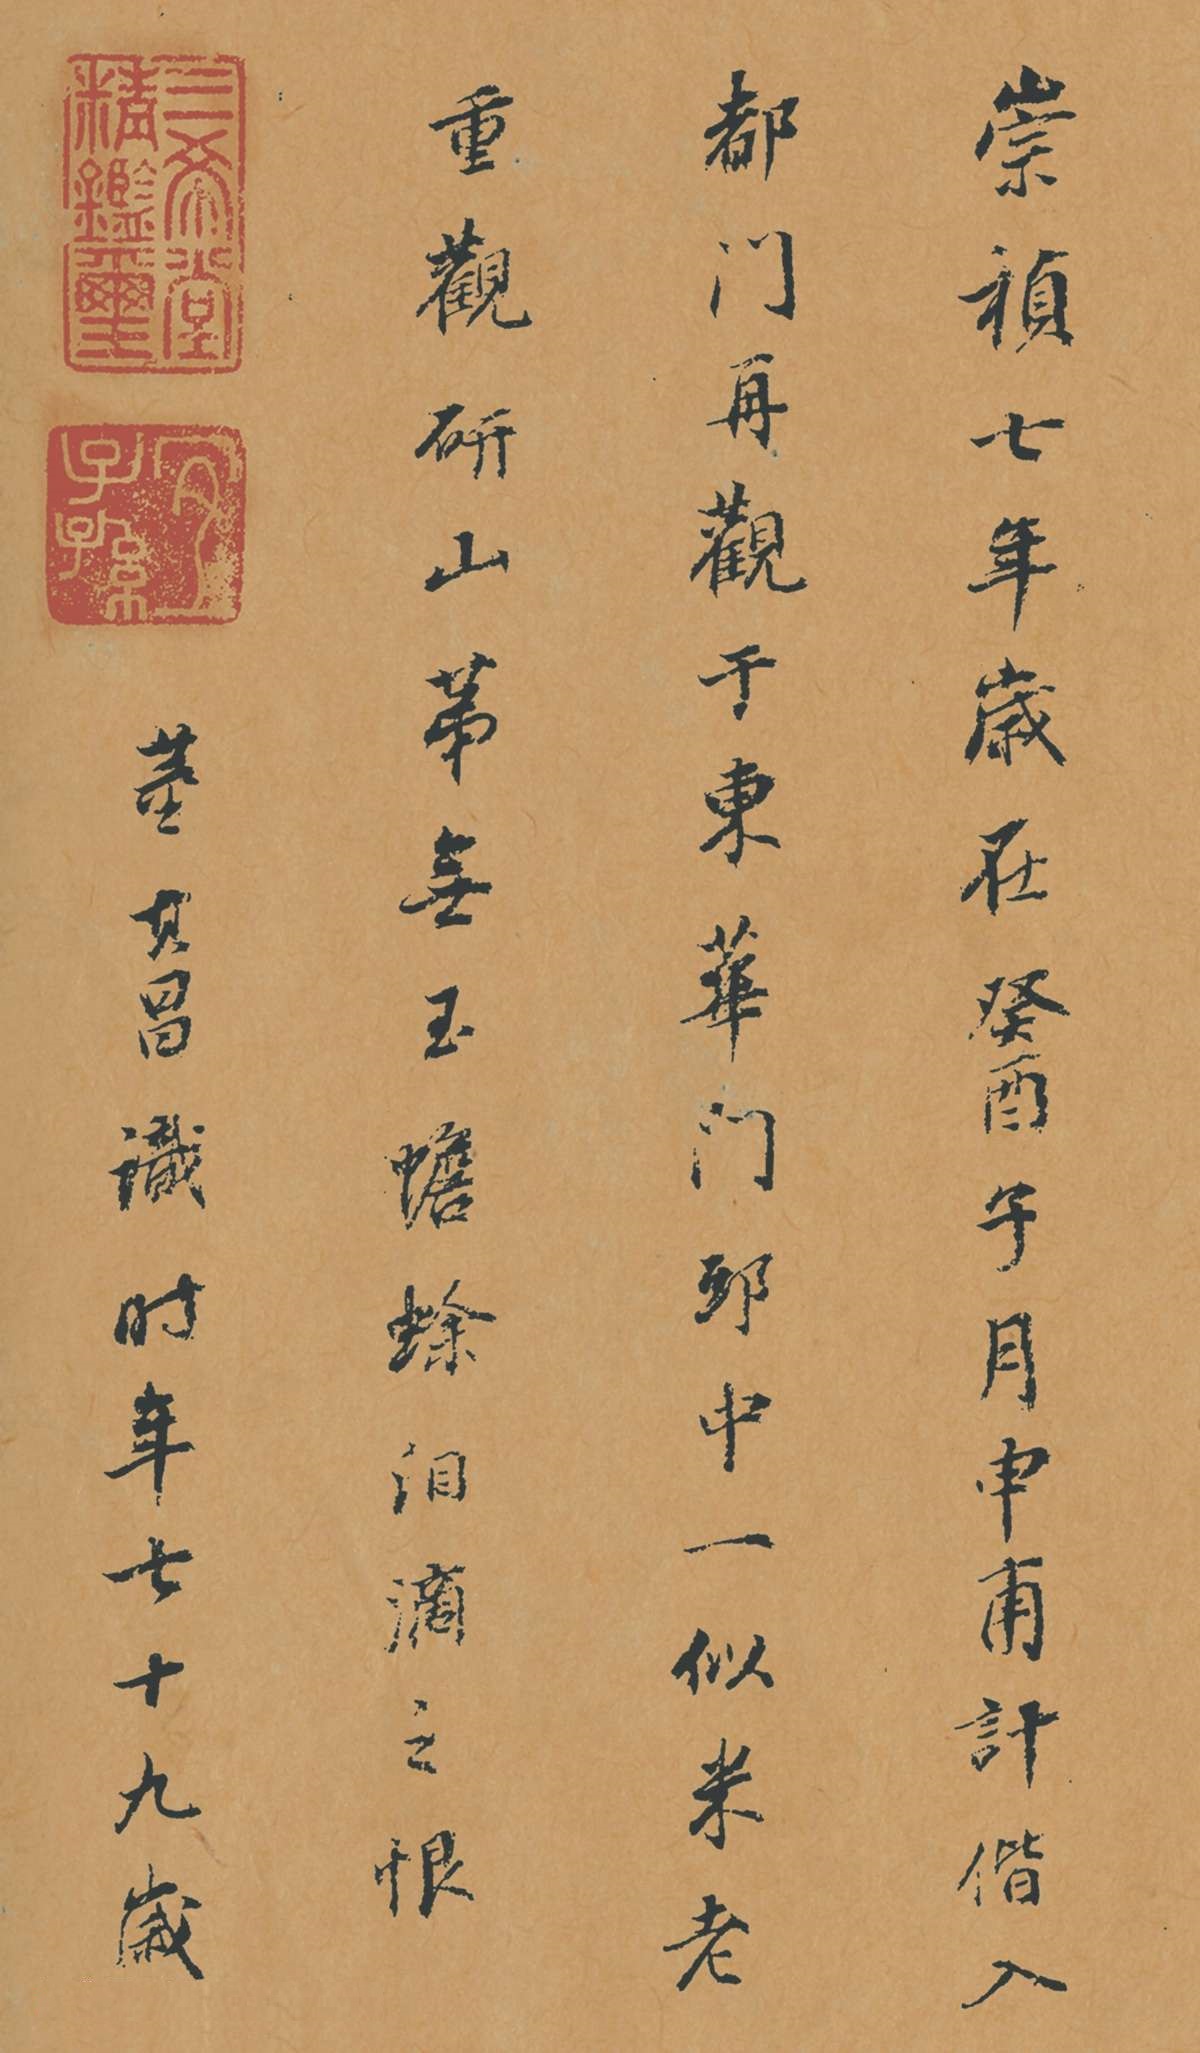 崇禎七年歲在癸酉子月申甫計偕入
都門再觀于東華門邸中一似米老
重觀研山苐無玉蟾蜍泪滴之恨
董其昌識時年七十九歲
三希堂
精鑑璽
宜
子孫